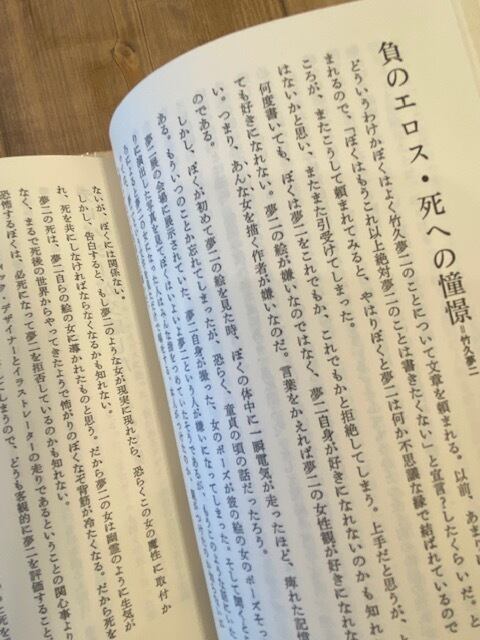 負のエロス・死への憧憬=竹久夢二
どういうわけかぼくはよく竹久夢二のことについて文章を頼まれる。以前、あまり
まれるので、「ぼくはもうこれ以上絶対夢二のことは書きたくない」と宣言?したくらいだ。と
ころが、またこうして頼まれてみると、やはりぼくと夢二は何か不思議な縁で結ばれているので
はないかと思い、またまた引受けてしまった。
何度書いても、ぼくは夢二をこれでもか、これでもかと拒絶してしまう。上手だと思うが、
ても好きになれない。夢二の絵が嫌いなのではなく、夢二自身が好きになれないのかも知れ
い。つまり、あんな女を描く作者が嫌いなのだ。言葉をかえれば夢二の女性観が好きになれな
のである。
しかし、ぼくが初めて夢二の絵を見た時、ぼくの体中に一瞬電気が走ったほど、痺れた記憶
ある。もういつのことか忘れてしまったが、恐らく、童貞の頃の話だったろう。
夢二展の会場に展示されていた、夢二自身が撮った、女のポーズが彼の絵の女のポーズそっ
りに演出した写真を見てぼくはいよいよ夢二という人が嫌いになってしまった。そこに聞くと
ないが、ぼくには関係ない。
しかし、告白すると、もし夢二のような女が現実に現れたら、恐らくこの女の魔性に取付か
れ、死を共にしなければならなくなるかも知れない。
夢二の死は、夢二自らの絵の女に導かれたものと思う。だから夢二の女は幽霊のように生気が
なく、まるで死後の世界からやってきたようで怖がりのぼくなぞ背筋が冷たくなる。だから死を
恐怖するぼくは、必死になって夢二を拒否しているのかも知れない。
ィック・デザイナーとイラストレーターの走りであるということの関心事より
てしまうので、どうも客観的に夢二を評価すること